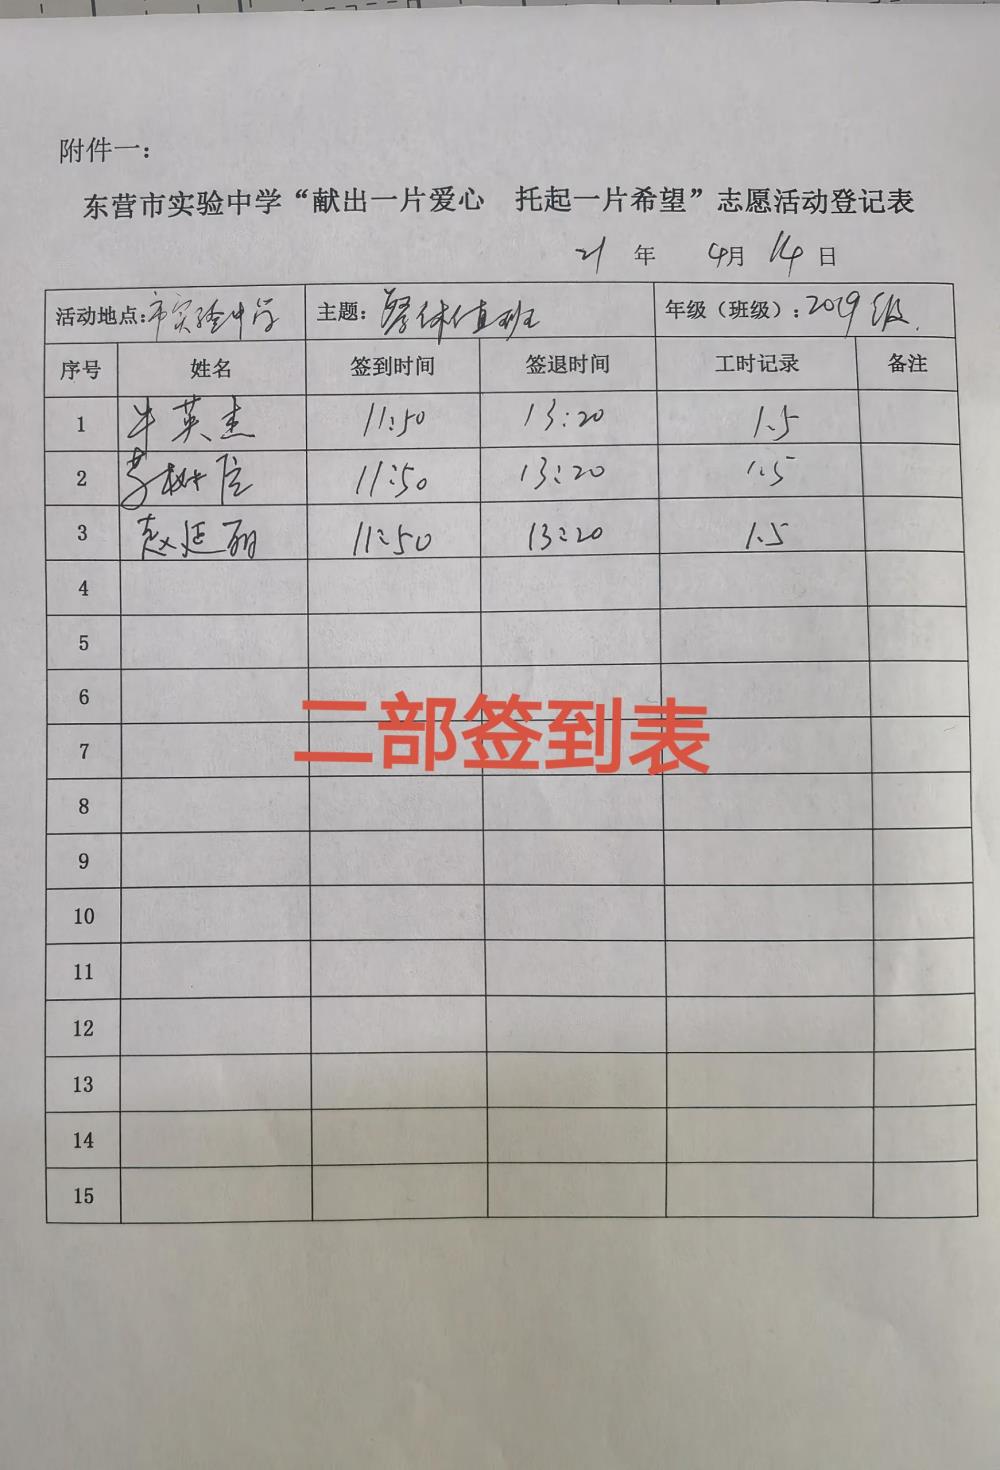 附件一：
东营市实验中学“献出一片爱心 托起一片希望”志愿活动登记表
21 年 4月 14 日
活动地点：市实验中学 主题：餐休值班 年级（班级）：2019级
序号 姓名 签到时间 签退时间 工时记录 备注
1 牛英杰 11:50 13:20 1.5
2 11:50 13:20 1.5
3 赵廷丽 11:50 13:20 1.5
4
5
6
二部签到表
7
8
9
10
11
12
13
14
15